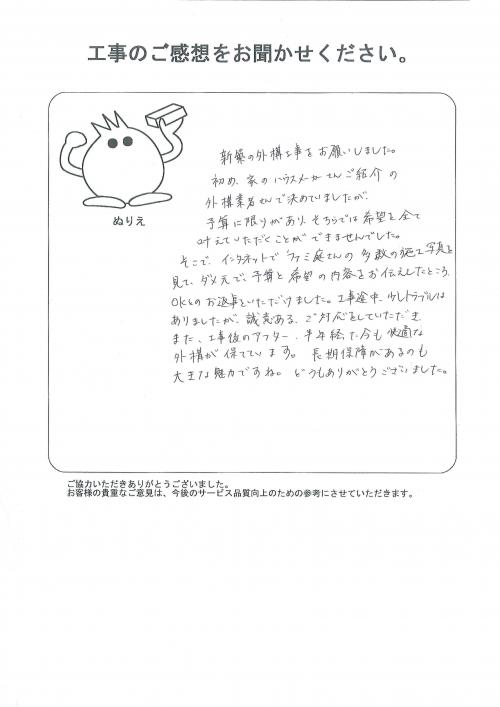 工事のご感想をお聞かせください。
ぬりえ
新築の外構工事をお願いしました。
初め、家のハウスメーカーさんご紹介の
外構業者さんで決めていましたが、
予算に限りがあり、そちらでは希望を全て
叶えていただくことができませんでした。
そこで、インタネットでファミ庭さんの多数の施工写真を
見て、ダメ元で、予算と希望の内容をお伝えしたところ、
OKとのお返事をいただけました。工事途中、少しトラブルは
ありましたが、誠意ある、ご対応をしていただき
また、工事後のアフター、半年経った今も快適な
外構が保てています。長期保障があるのも
大きな魅力ですね。どうもありがとうございました。
ご協力いただきありがとうございました。
お客様の貴重なご意見は、今後のサービス品質向上のための参考にさせていただきます。